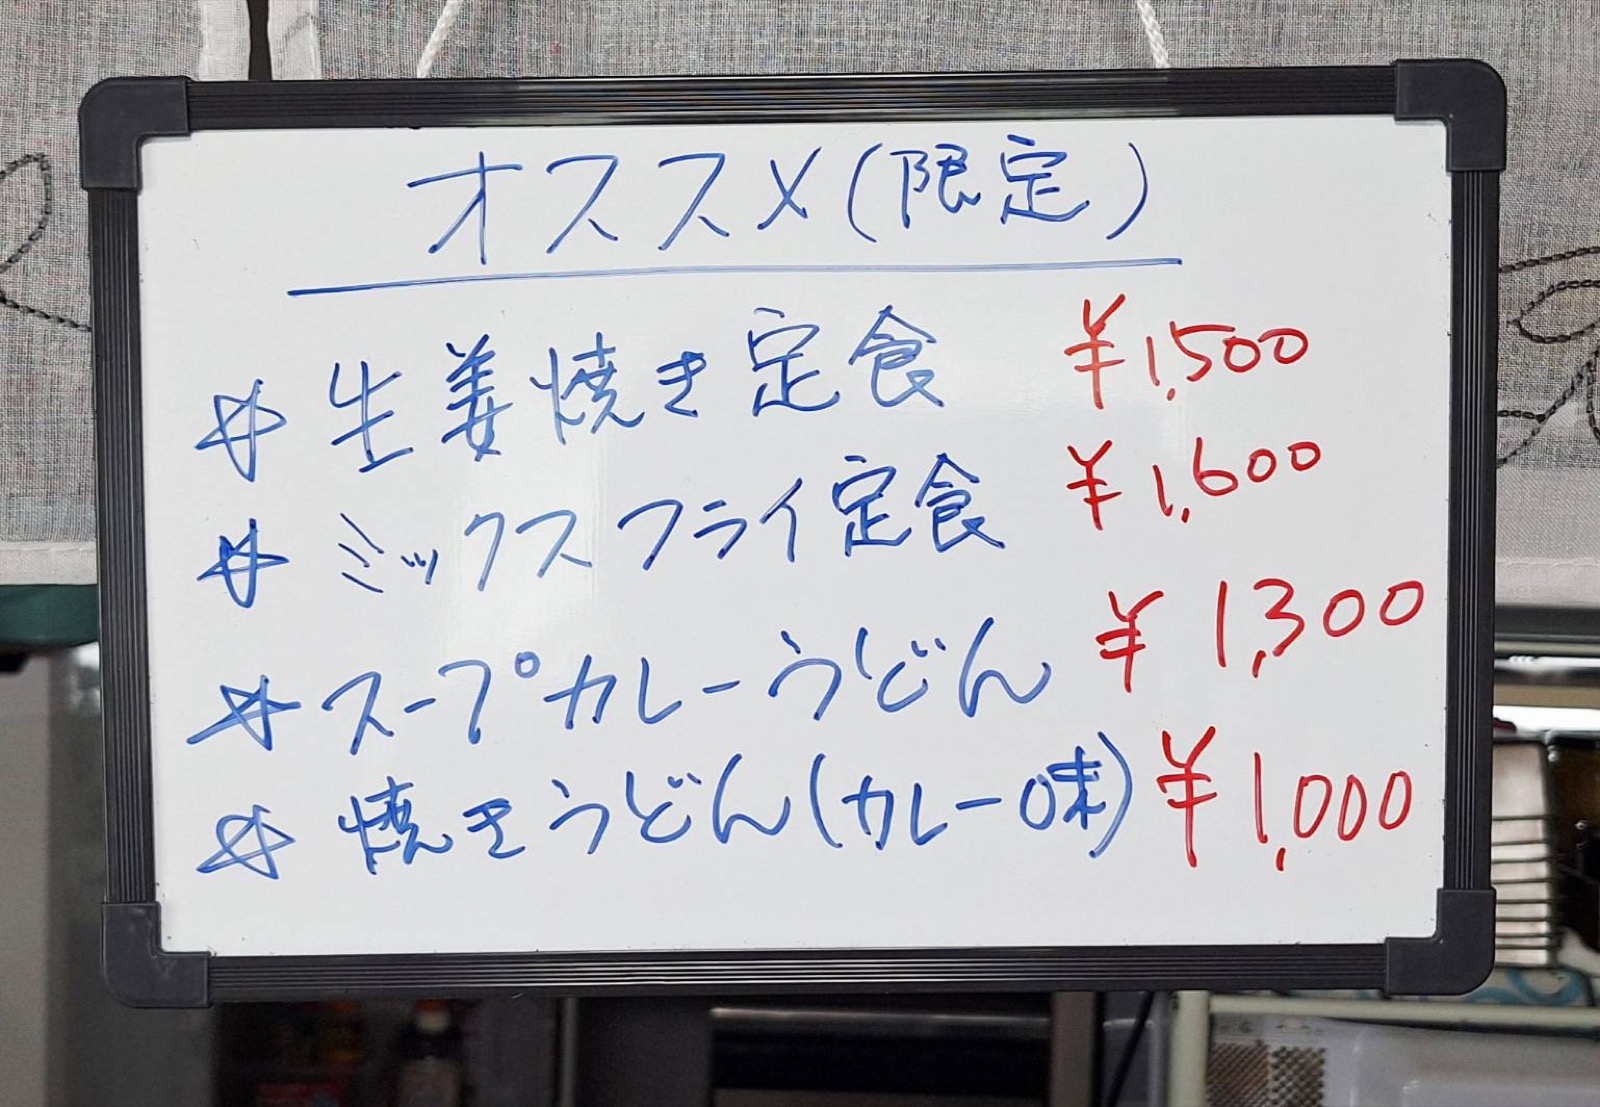 オススメ(限定)
☆ 生姜焼き定食 ¥1,500
☆ ミックスフライ定食 ¥1,600
☆ スープカレーうどん ¥1,300
☆ 焼きうどん(カレー味) ¥1,000